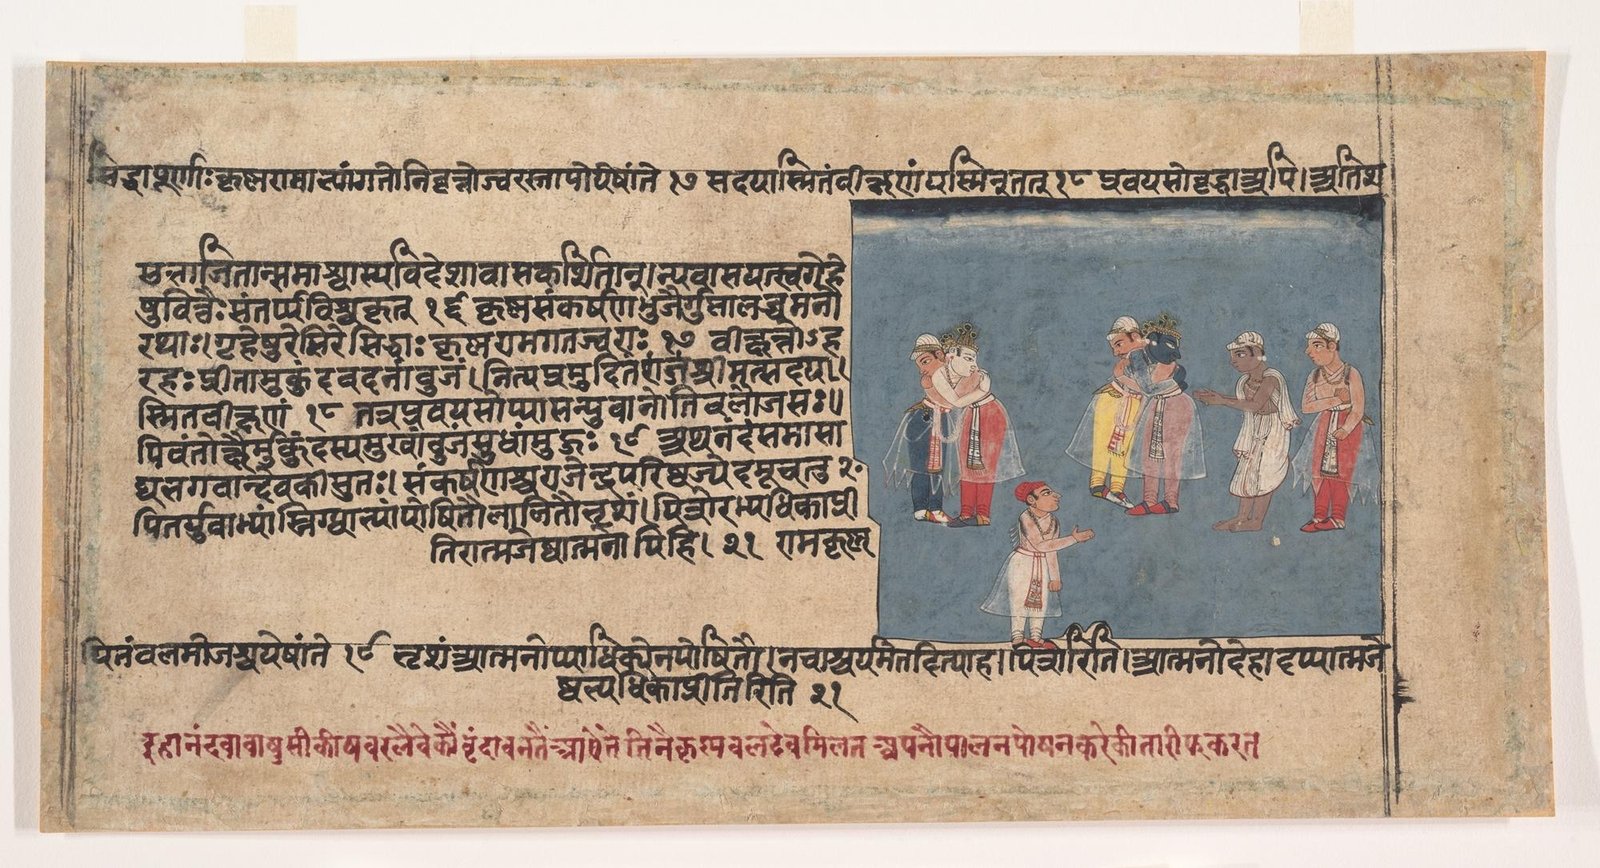 सिद्धाः पूर्णाः कृष्णरामाभ्यांगतोनिवृत्तोज्वरस्तापोयेषांते १७ सदयास्मितंवीक्षणंयस्मिन्तत् १८ प्रवयसोवृद्धाअपि। अतिश
सभाजितान्समाश्वास्यविदेशावासकर्शितान्। न्यवासयत्स्वगेहे
षुवित्तैः संतर्प्यविश्वकृत् १६ कृष्णसंकर्षणभुजैर्गुप्तालब्धमनो
रथाः। गृहेषुरेमिरेसिद्धाः कृष्णरामगतज्वराः १७ वीक्षन्तोऽह
रहः प्रीतामुकुंदवदनांबुजं। नित्यंप्रमुदितंश्रीमत्सदया
स्मितवीक्षणं १८ तत्रप्रवयसोप्यासन्युवानोतिबलौजसः॥
पिवंतोक्षैर्मुकुंदस्यमुखांबुजसुधांमुहुः १९ अथनंदंसमासा
द्यभगवान्देवकीसुतः। संकर्षणश्चराजेन्द्रपरिष्वज्येदमूचतुः २०
पितर्युवाभ्यांस्निग्धाभ्यांपोषितौलालितौभृशं। पित्रोरभ्यधिकाप्री
तिरात्मजेष्वात्मनोपिहि। २१ रामकृष्ण
यितंबलमोजश्चयेषांते १९ भृशंआत्मनोप्याधिक्येनपोषितौ। नचाश्चर्यमेतदित्याह। पित्रोरिति। आत्मनोदेहादप्यात्मजे
ष्वभ्यधिकाप्रीतिरिति २१
वृंदावनतैं आयेते तिनैकृष्णबलदेवमिलत अपनौपालनपोषनकरेकीतारीफकरत